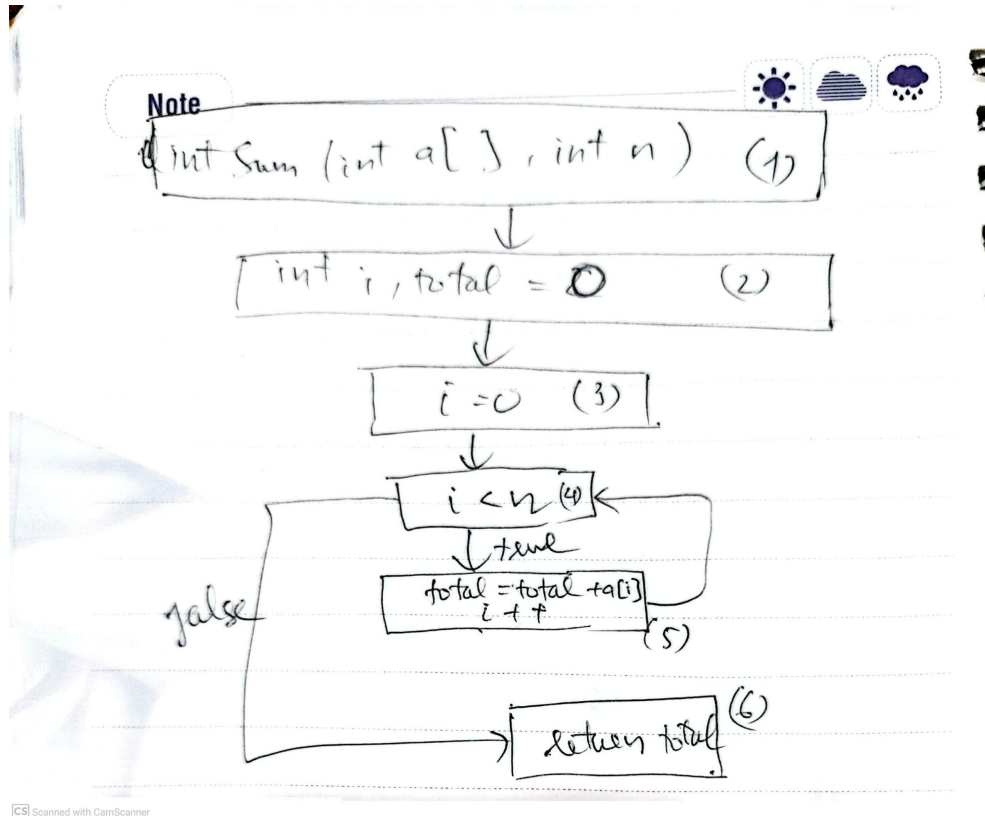 Note
int Sum (int a[], int n) (1)
int i, total = 0 (2)
i=0 (3)
i < n (4)
true
total = total + a[i]
i++
(5)
false
(6)
return total
CS Scanned with CamScanner